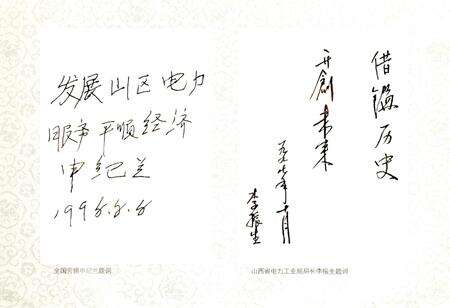 发展山区电力
服务平顺经济
申纪兰
1998.8.8
全国劳模申纪兰题词
借鉴历史
开创未来
一九九八年十月
李振生
山西省电力工业局局长李振生题词